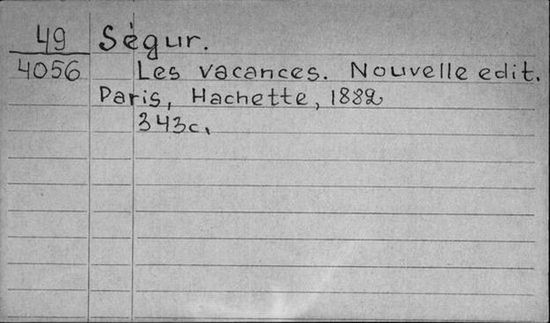 49 Ségur.
4056 Les vacances. Nouvelle edit.
Paris, Hachette, 1882
343c.